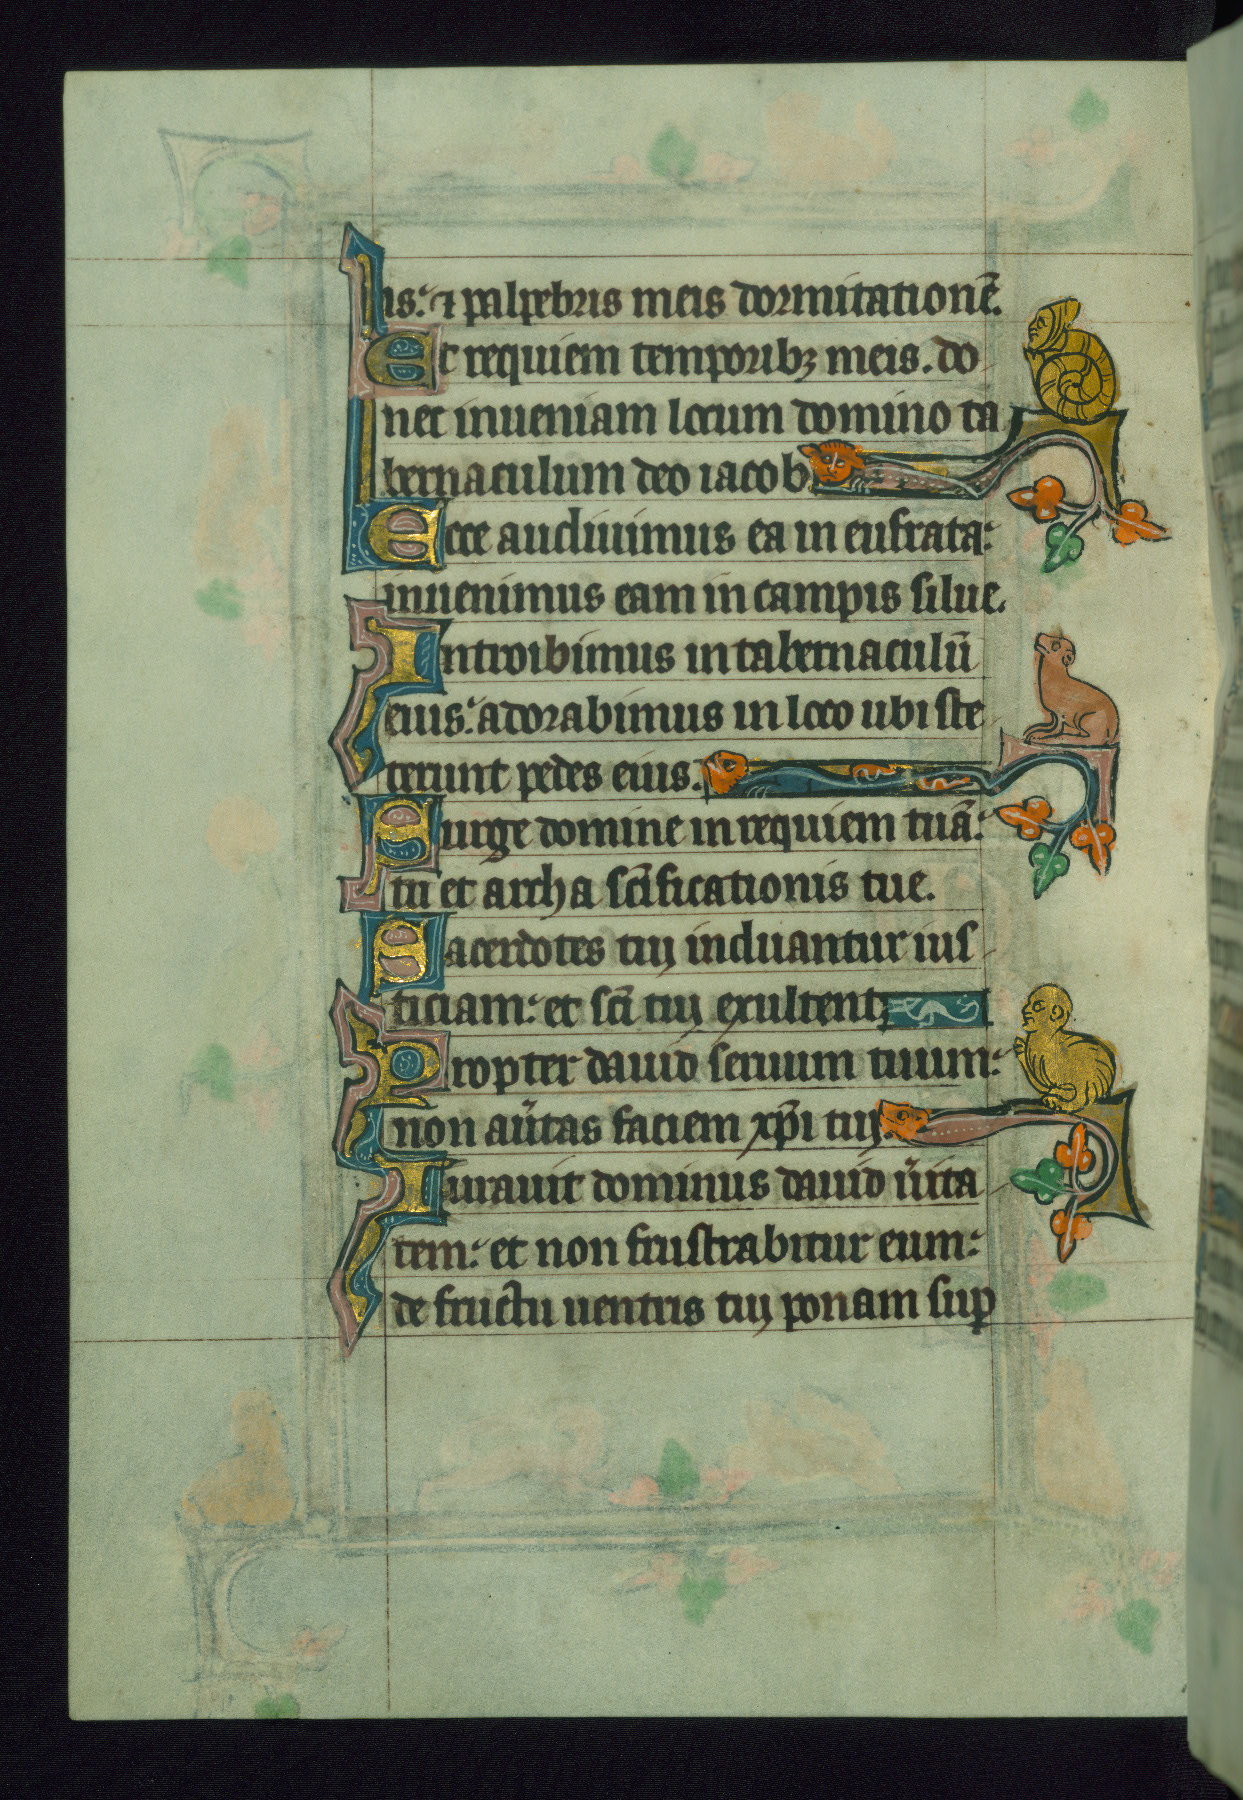 is: ⁊ palpebris meis dormitationē.
Et requiem temporibꝫ meis. do
nec inueniam locum domino ta
bernaculum deo iacob
Ecce audiuimus ea in eufrata:
inuenimus eam in campis silue.
Introibimus in tabernaculū
eius: adorabimus in loco ubi ste
terunt pedes eius.
Surge domine in requiem tuā:
tu et archa scīficationis tue.
Sacerdotes tui induantur ius
ticiam: et scī tui exultent
Propter dauid seruum tuum:
non au͛tas faciem xp̄i tui.
Iurauit dominus dauid u͛ita
tem: et non frustrabitur eum:
de fructu uentris tui ponam suꝑ